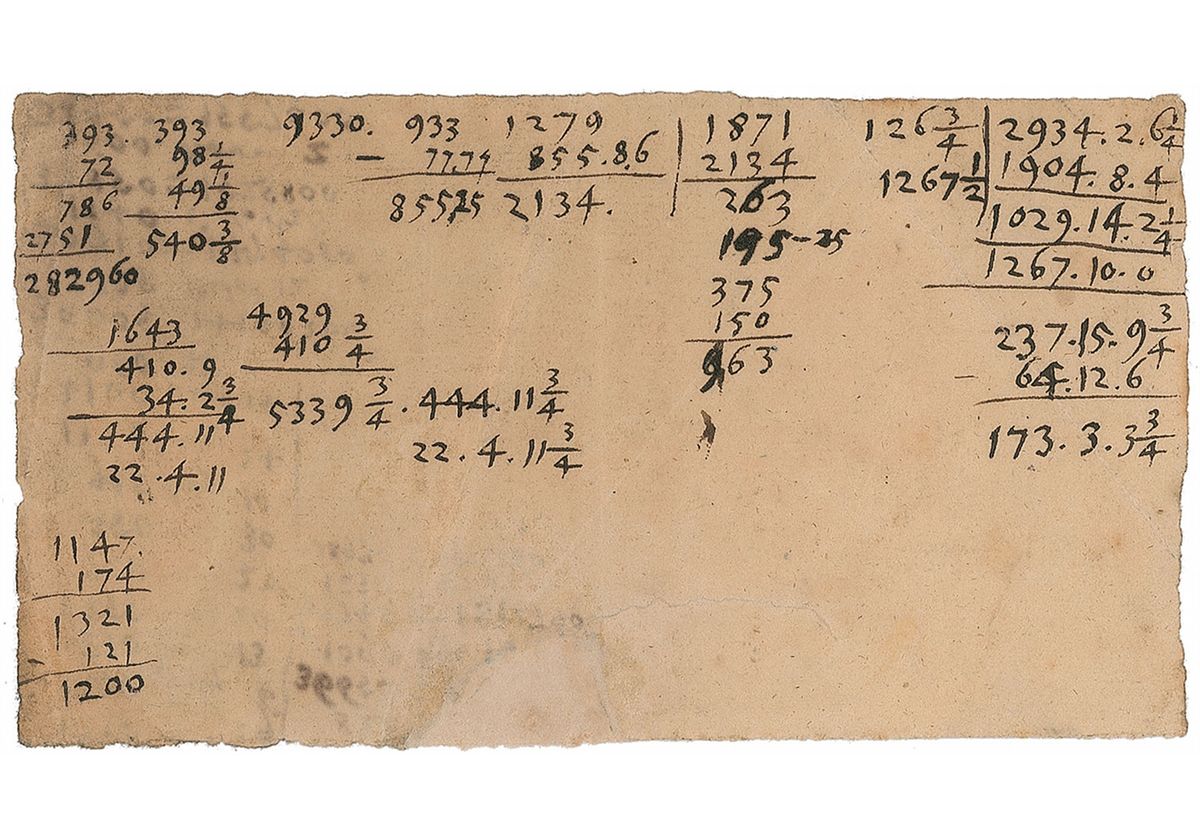 393
72
786
2751
282960
393
98 1/4
49 1/8
540 3/8
9330.
933
- 77.74
855,25
1279
855.8.6
2134.
1871
2134
263
195-25
375
150
963
126 3/4
1267 1/2
2934.2.6 1/4
1904.8.4
1029.14.2 1/4
1267.10.0
237.15.9 3/4
- 64.12.6
173.3.3 3/4
1643
410.9
34.2 3/4
444.11
22.4.11
4929
410 3/4
5339 3/4 . 444.11 3/4
22.4.11 3/4
1147.
174
1321
- 121
1200